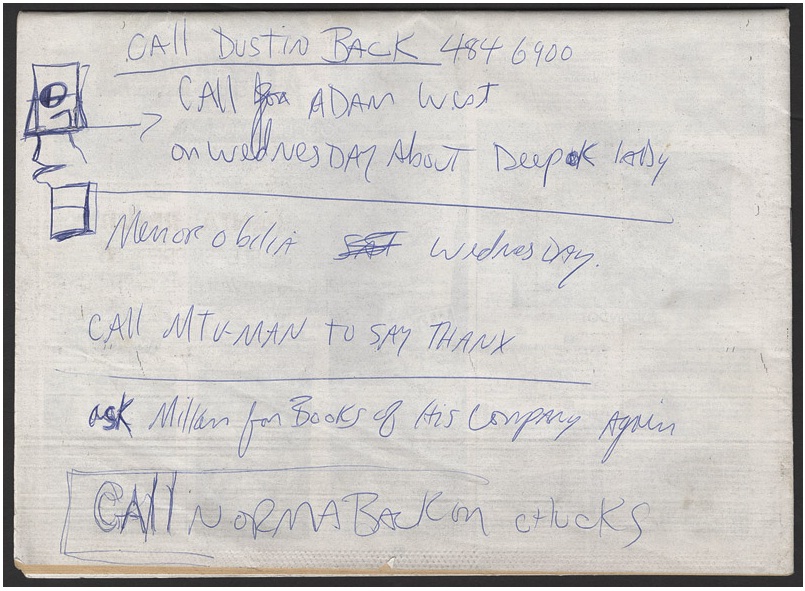 CALL DUSTIN BACK 484 6900
CALL for ADAM West
on WedNesDAY About Deepak lady
Memorobilia Wednes DAY.
CALL MTV-MAN TO SAY THANX
ask Millan for Books of His Company Again
CAll NORMA BACK on cHucKS